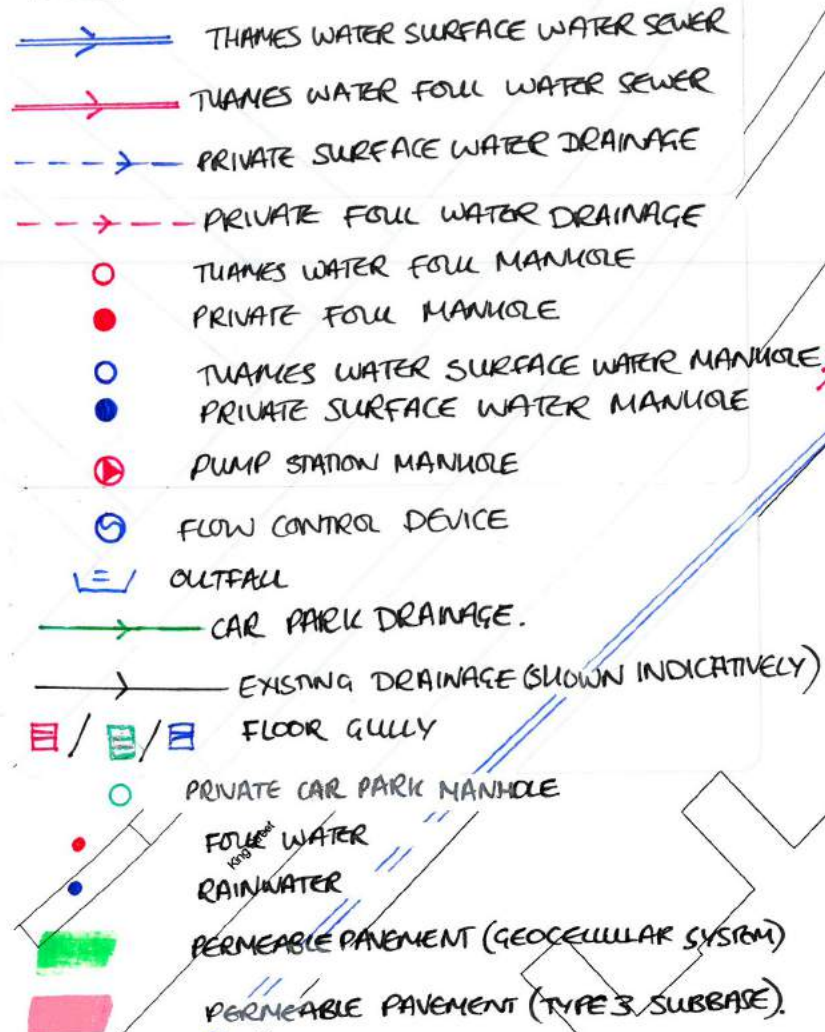 THAMES WATER SURFACE WATER SEWER
THAMES WATER FOUL WATER SEWER
PRIVATE SURFACE WATER DRAINAGE
PRIVATE FOUL WATER DRAINAGE
THAMES WATER FOUL MANHOLE
PRIVATE FOUL MANHOLE
THAMES WATER SURFACE WATER MANHOLE
PRIVATE SURFACE WATER MANHOLE
PUMP STATION MANHOLE
FLOW CONTROL DEVICE
OUTFALL
CAR PARK DRAINAGE.
EXISTING DRAINAGE (SHOWN INDICATIVELY)
FLOOR GULLY
PRIVATE CAR PARK MANHOLE
FOUL WATER
King Street
RAINWATER
PERMEABLE PAVEMENT (GEOCELLULAR SYSTEM)
PERMEABLE PAVEMENT (TYPE 3 SUBBASE).